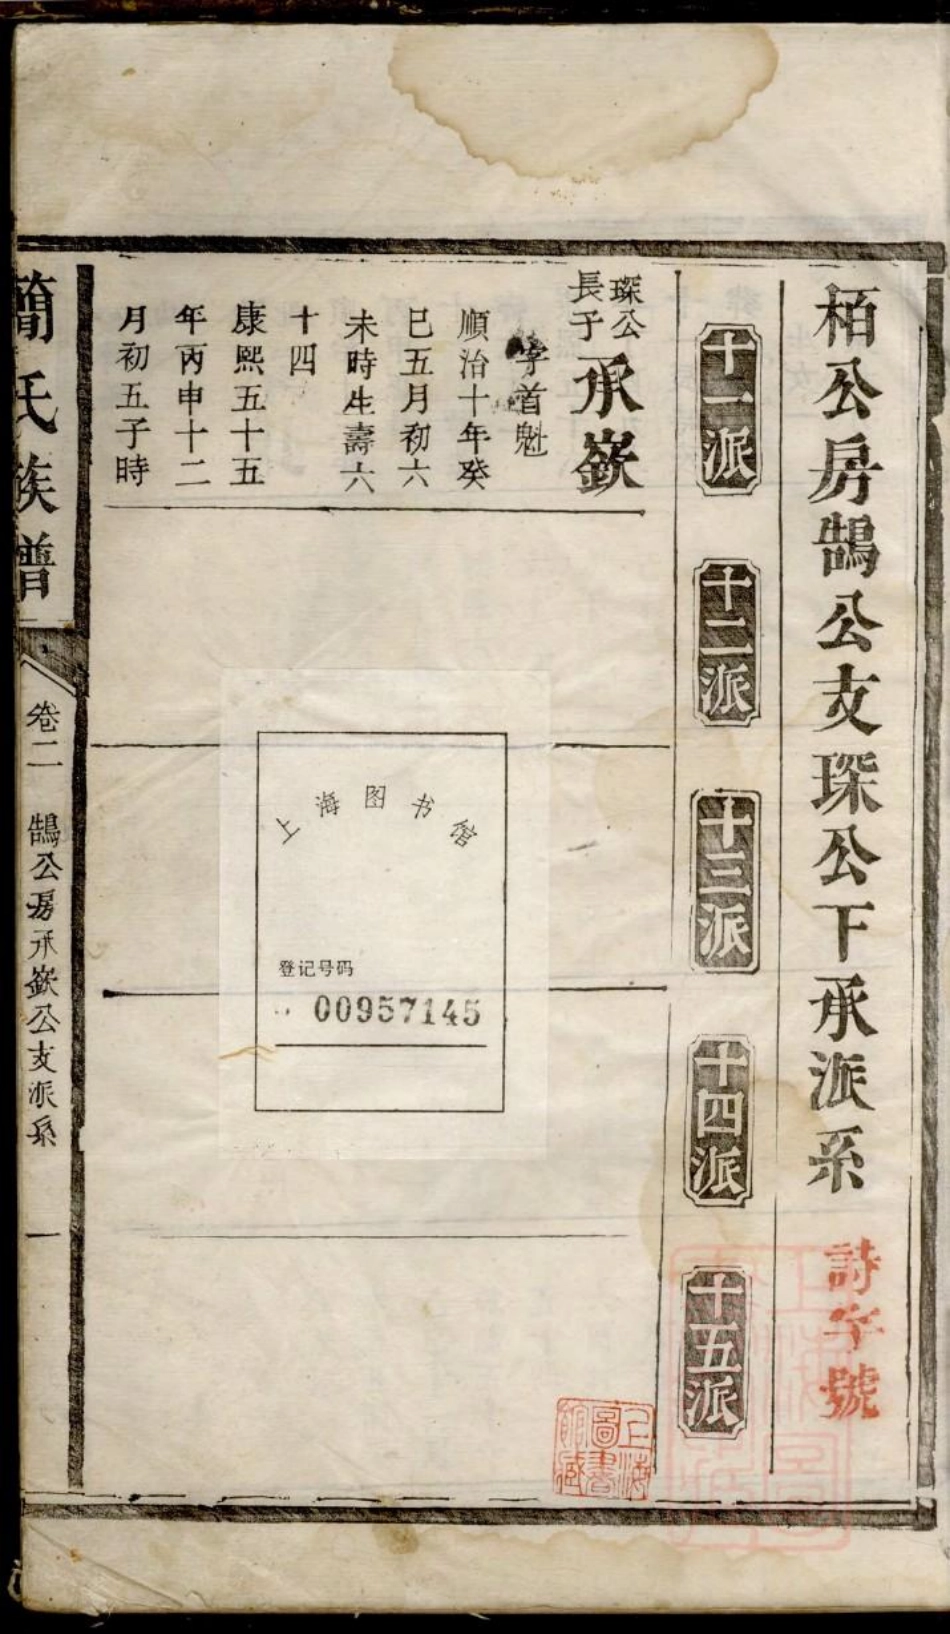 栢公房鵠公支琛公下承派系
詩字號
十一派
十二派
十三派
十四派
十五派
琛公
長子
承嶔
字首魁
順治十年癸
巳五月初六
未時生壽六
十四
康熙五十五
年丙申十二
月初五子時
簡氏族譜
卷二
鵠公房承嶔公支派系
一
上海图书馆
登记号码
00957145
上海
圖書
館藏
上海
圖書
館藏